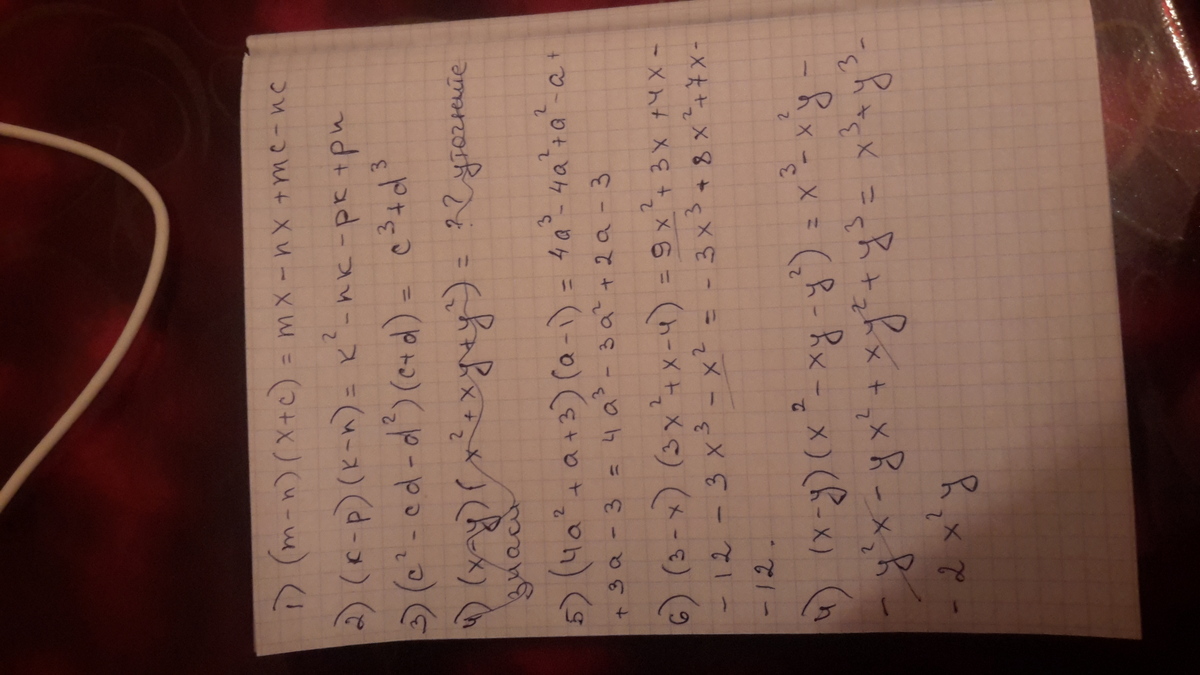 1) (m-n)(x+c) = mx - nx + mc - nc
2) (к-p)(к-n) = к² - nк - pк + pn
3) (c² - cd - d²)(c+d) = c³ + d³
4) (x-y)(x² + xy + y²) = ?? уточните
знаси
5) (4a² + a + 3)(a-1) = 4a³ - 4a² + a² - a +
+ 3a - 3 = 4a³ - 3a² + 2a - 3
6) (3-x)(3x² + x - 4) = 9x² + 3x + 4x -
- 12 - 3x³ - x² = - 3x³ + 8x² + 7x -
- 12.
4) (x-y)(x² - xy - y²) = x³ - x²y -
- y²x - yx² + xy² + y³ = x³ + y³ -
- 2x²y